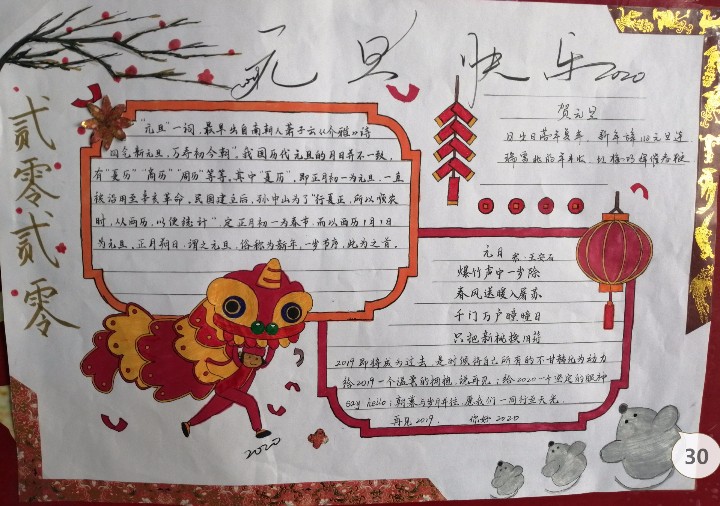 元旦快乐2020
贰零贰零
"元旦"一词,最早出自南朝人萧子云《介雅》诗
四气新元旦,万寿初今朝"。我国历代元旦的月日并不一致。
有"夏历""商历""周历"等等,其中"夏历",即正月初一为元旦,一直
被沿用至辛亥革命,民国建立后,孙中山为了"行夏正,所以顺农
时,从西历,以便统计",定正月初一为春节,而以西历1月1日
为元旦,正月朔日,谓之元旦,俗称为新年,一岁节序,此为之首。
贺元旦
元日 宋·王安石
爆竹声中一岁除
春风送暖入屠苏
千门万户曈曈日
只把新桃换旧符
2019即将成为过去,是时候将自己所有的不甘转化为动力
给2019一个温柔的拥抱,说再见;给2020一个坚定的眼神
say hello;朝暮与岁月并往,愿我们一同行至天光。
再见2019, 你好2020
2020
30